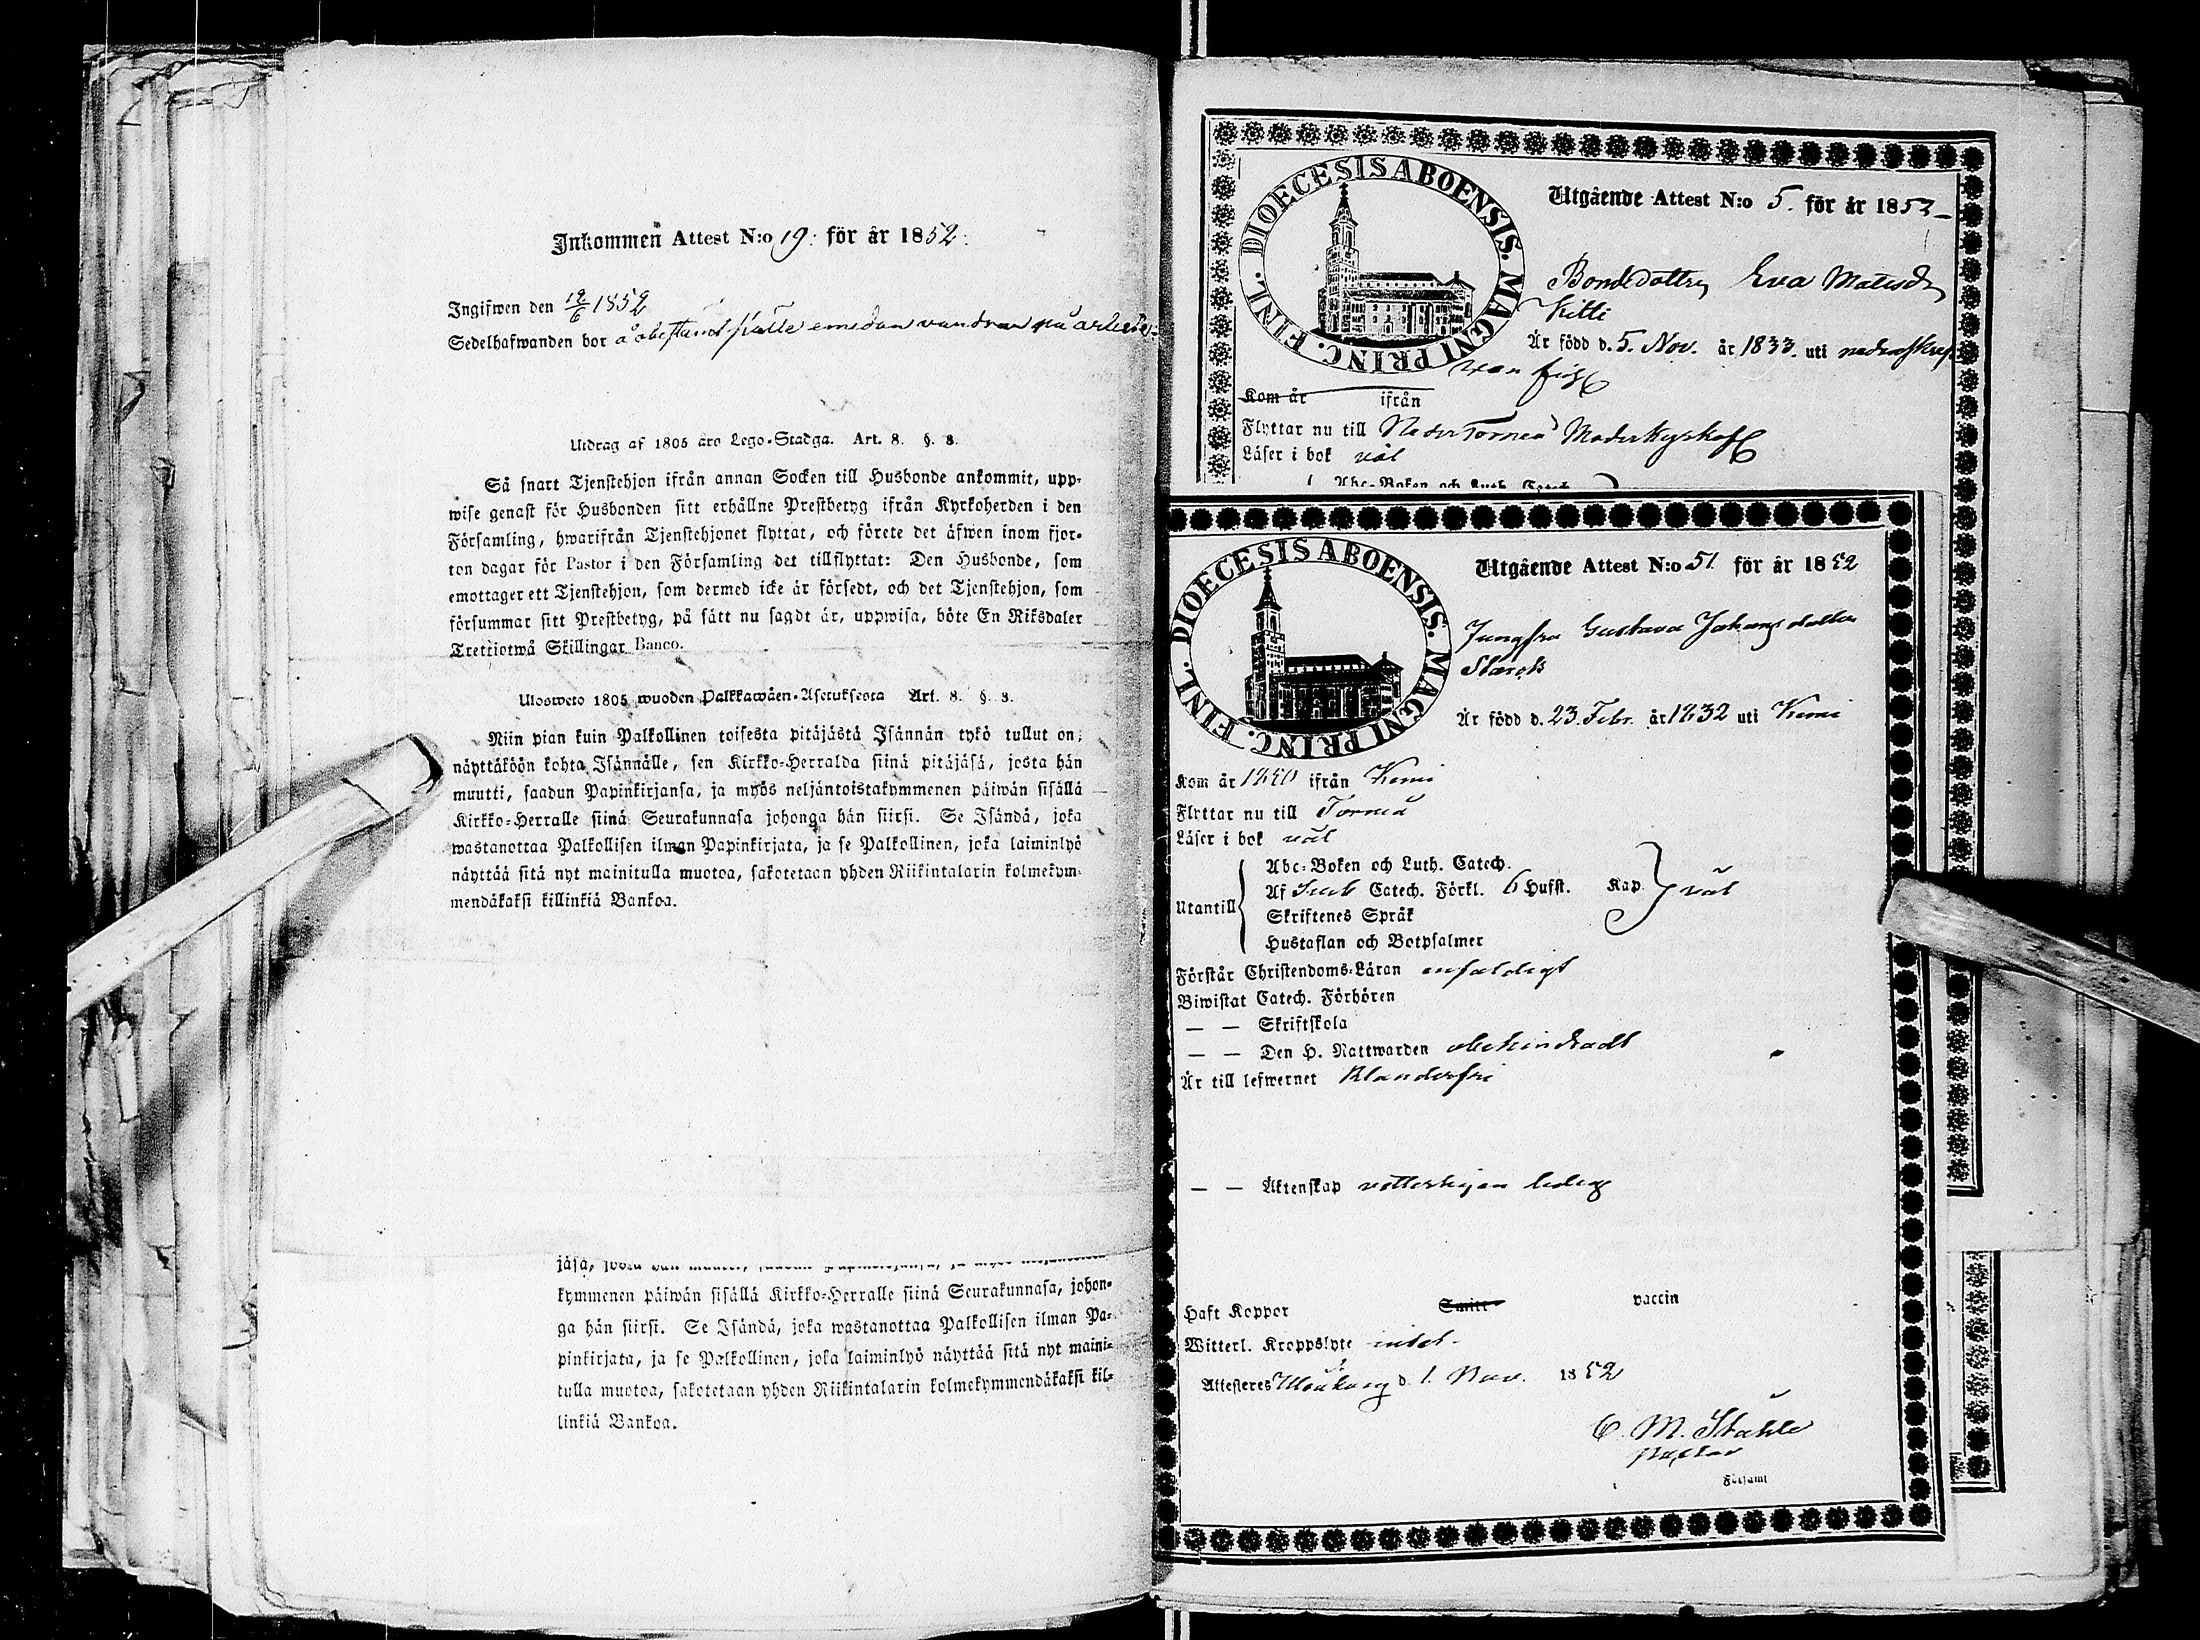 Inkommen Attest N:o 19. för år 1852.
Ingifwen den 12/6 1852
Sedelhafwanden bor å obestämdt ställe emedan vandrar på arbete.
Utdrag af 1805 års Lego-Stadga. Art. 8. §. 8.
Så snart Tjenstehjon ifrån annan Socken till Husbonde ankommit, upp-
wise genast för Husbonden sitt erhållne Prestbetyg ifrån Kyrkoherden i den
Församling, hwarifrån Tjenstehjonet flyttat, och förete det äfwen inom fjor-
ton dagar för Pastor i den Församling det tillflyttat: Den Husbonde, som
emottager ett Tjenstehjon, som dermed icke är försedt, och det Tjenstehjon, som
försummar sitt Prestbetyg, på sätt nu sagdt är, uppwisa, böte En Riksdaler
Trettiotwå Skillingar Banco.
Ulosweto 1805 wuoden Palkkawäen-Asetuksesta Art. 8. §. 8.
Niin pian kuin Palkollinen toisesta pitäjästä Isännän tykö tullut on,
näyttäköön kohta Isännälle, sen Kirkko-Herralda siinä pitäjäsä, josta hän
muutti, saadun Papinkirjansa, ja myös neljäntoistakymmenen päiwän sisällä
Kirkko-Herralle siinä Seurakunnasa johonga hän siirsi. Se Isändä, joka
wastanottaa Palkollisen ilman Papinkirjata, ja se Palkollinen, joka laiminlyö
näyttää sitä nyt mainitulla muotoa, sakotetaan yhden Riikintalarin kolmekym-
mendäkaksi killinkiä Bankoa.
kymmenen päiwän sisällä Kirkko-Herralle siinä Seurakunnasa, johon-
ga hän siirsi. Se Isändä, joka wastanottaa Palkollisen ilman Pa-
pinkirjata, ja se Palkollinen, joka laiminlyö näyttää sitä nyt maini-
tulla muotoa, sakotetaan yhden Riikintalarin kolmekymmendäkaksi kil-
linkiä Bankoa.
DIOECESIS ABOENSIS. MAGNI PRINC. FINL.
Utgående Attest N:o 5. för år 1852
Bondedottren Eva Matsdr
Kitti
Är född d. 5. Nov. år 1833. uti
Kom år ifrån
Flyttar nu till Neder Torneå Moderkyrka
Läser i bok väl
Abc-Boken och Luth. Catech.
DIOECESIS ABOENSIS. MAGNI PRINC. FINL.
Utgående Attest N:o 51 för år 1852
Jungfru Gustava Johansdotter
Är född d. 23. Febr. år 1832 uti Kemi
Kom år 1850 ifrån Kemi
Flyttar nu till Torneå
Läser i bok väl
Utantill
Abc-Boken och Luth. Catech.
Af Catech. Förkl. 6 Hufst. Kap. väl
Skriftenes Språk
Hustaflan och Botpsalmer
Förstår Christendoms-Läran enfaldigt
Biwistat Catech. Förhören
— — Skriftskola
— — Den H. Nattwarden obehindradt
Är till lefwernet Klanderfri
— — Äktenskap vetterligen ledig
Haft Koppor Smitt vaccin
Witterl. Kroppslyte intet
Attesteres Uleåborg d. 1. Nov. 1852
C. M. Ståhle
Pastor
Församl